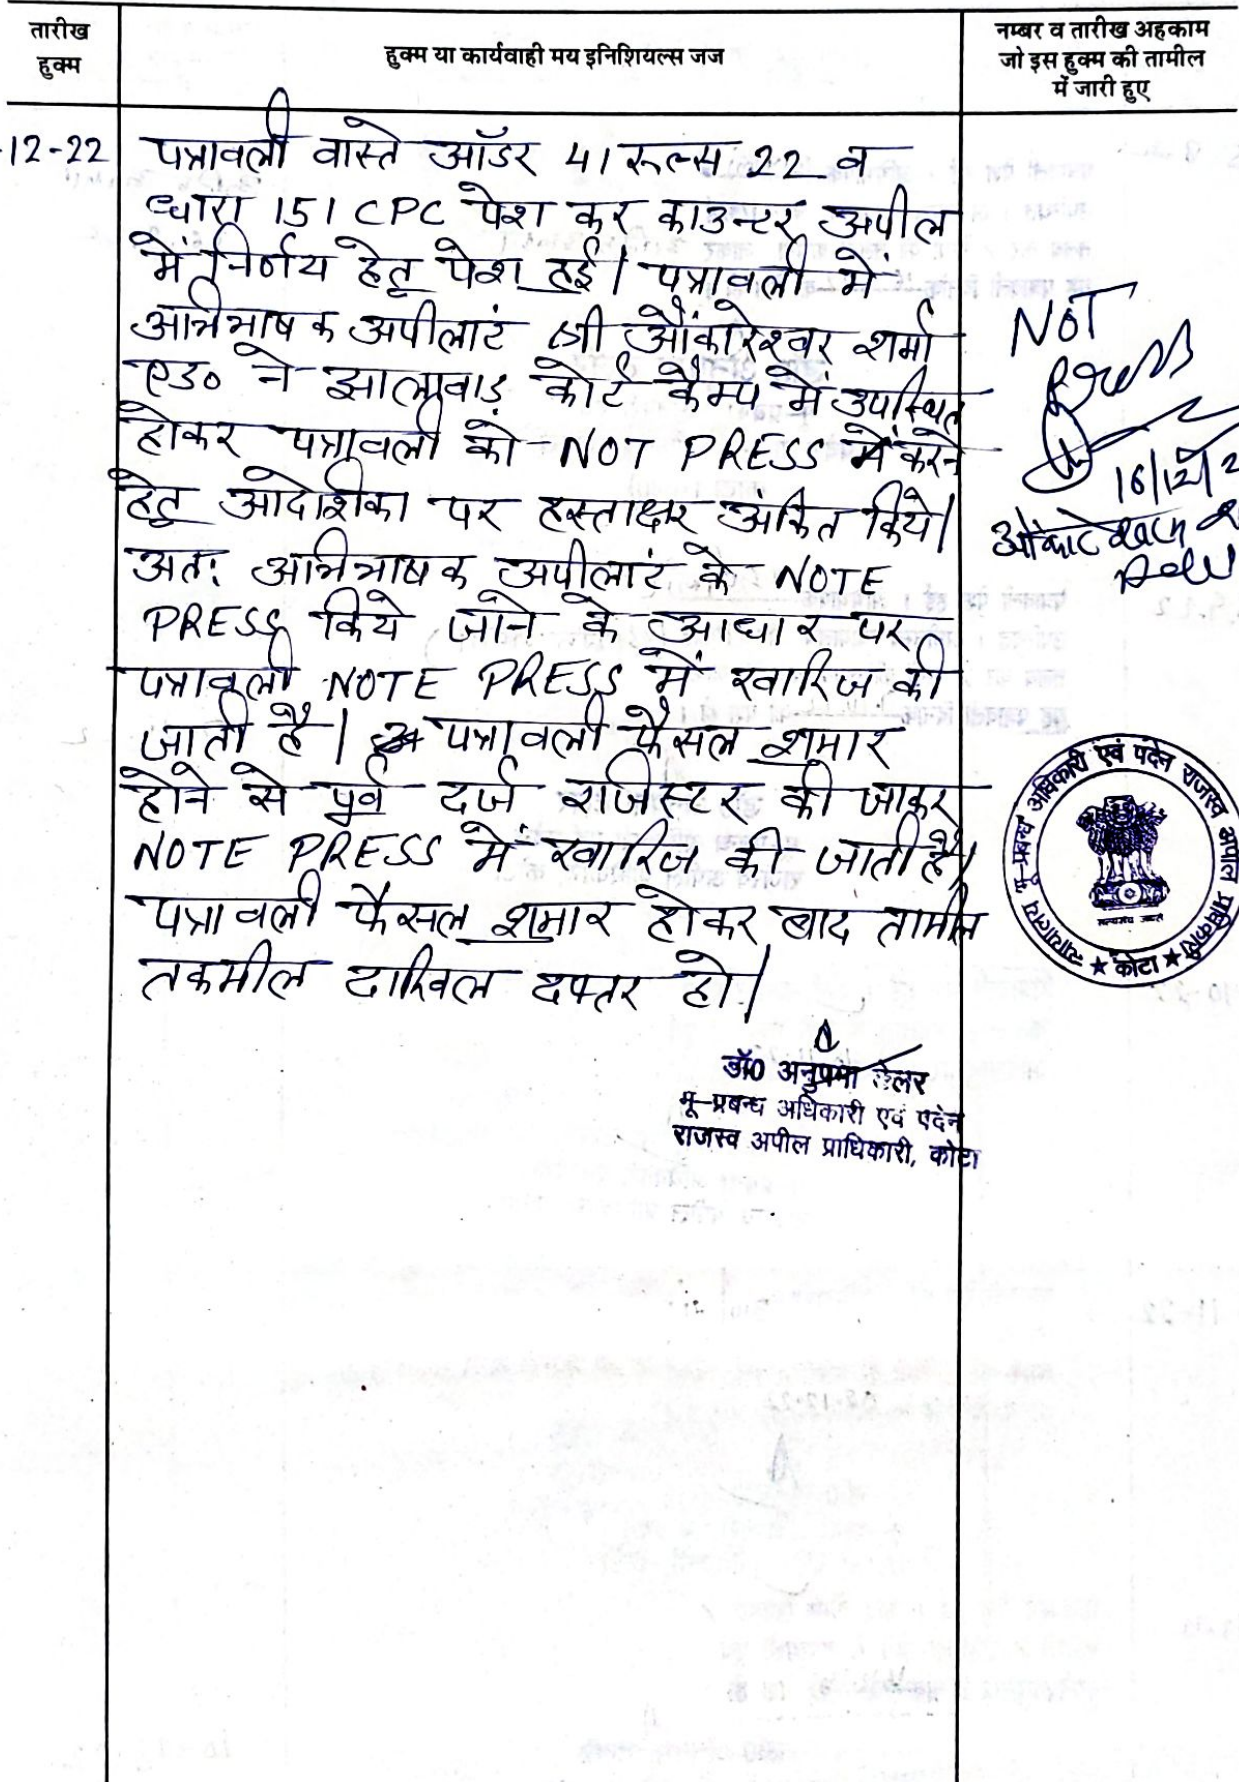 तारीख
हुक्म
हुक्म या कार्यवाही मय इनिशियल्स जज
नम्बर व तारीख अहकाम
जो इस हुक्म की तामील
में जारी हुए
-12-22
पत्रावली वास्ते ऑडर 41 रूल्स 22 व
धारा 151 CPC पेश कर काउन्टर अपील
में निर्णय हेतु पेश हुई। पत्रावली में
अभिभाषक अपीलांट श्री ओंकारेश्वर शर्मा
एड० ने झालावाड़ कोर्ट कैम्प में उपस्थित
होकर पत्रावली को NOT PRESS में करने
हेतु आदेशिका पर हस्ताक्षर अंकित किये।
अतः अभिभाषक अपीलांट के NOTE
PRESS किये जाने के आधार पर
पत्रावली NOTE PRESS में खारिज की
जाती है। पत्रावली फैसल शुमार
होने से पूर्व दर्ज राजिस्टर की जाकर
NOTE PRESS में खारिज की जाती है।
पत्रावली फैसल शुमार होकर बाद तामील
तकमील दाखिल दफ्तर हो।
NOT
Press
16/12/2
न्यायालय भू-प्रबन्ध अधिकारी एवं पदेन राजस्व अपील प्राधिकारी
★ कोटा ★
डॉ0 अनुप्रमा टेलर
भू-प्रबन्ध अधिकारी एवं पदेन
राजस्व अपील प्राधिकारी, कोटा